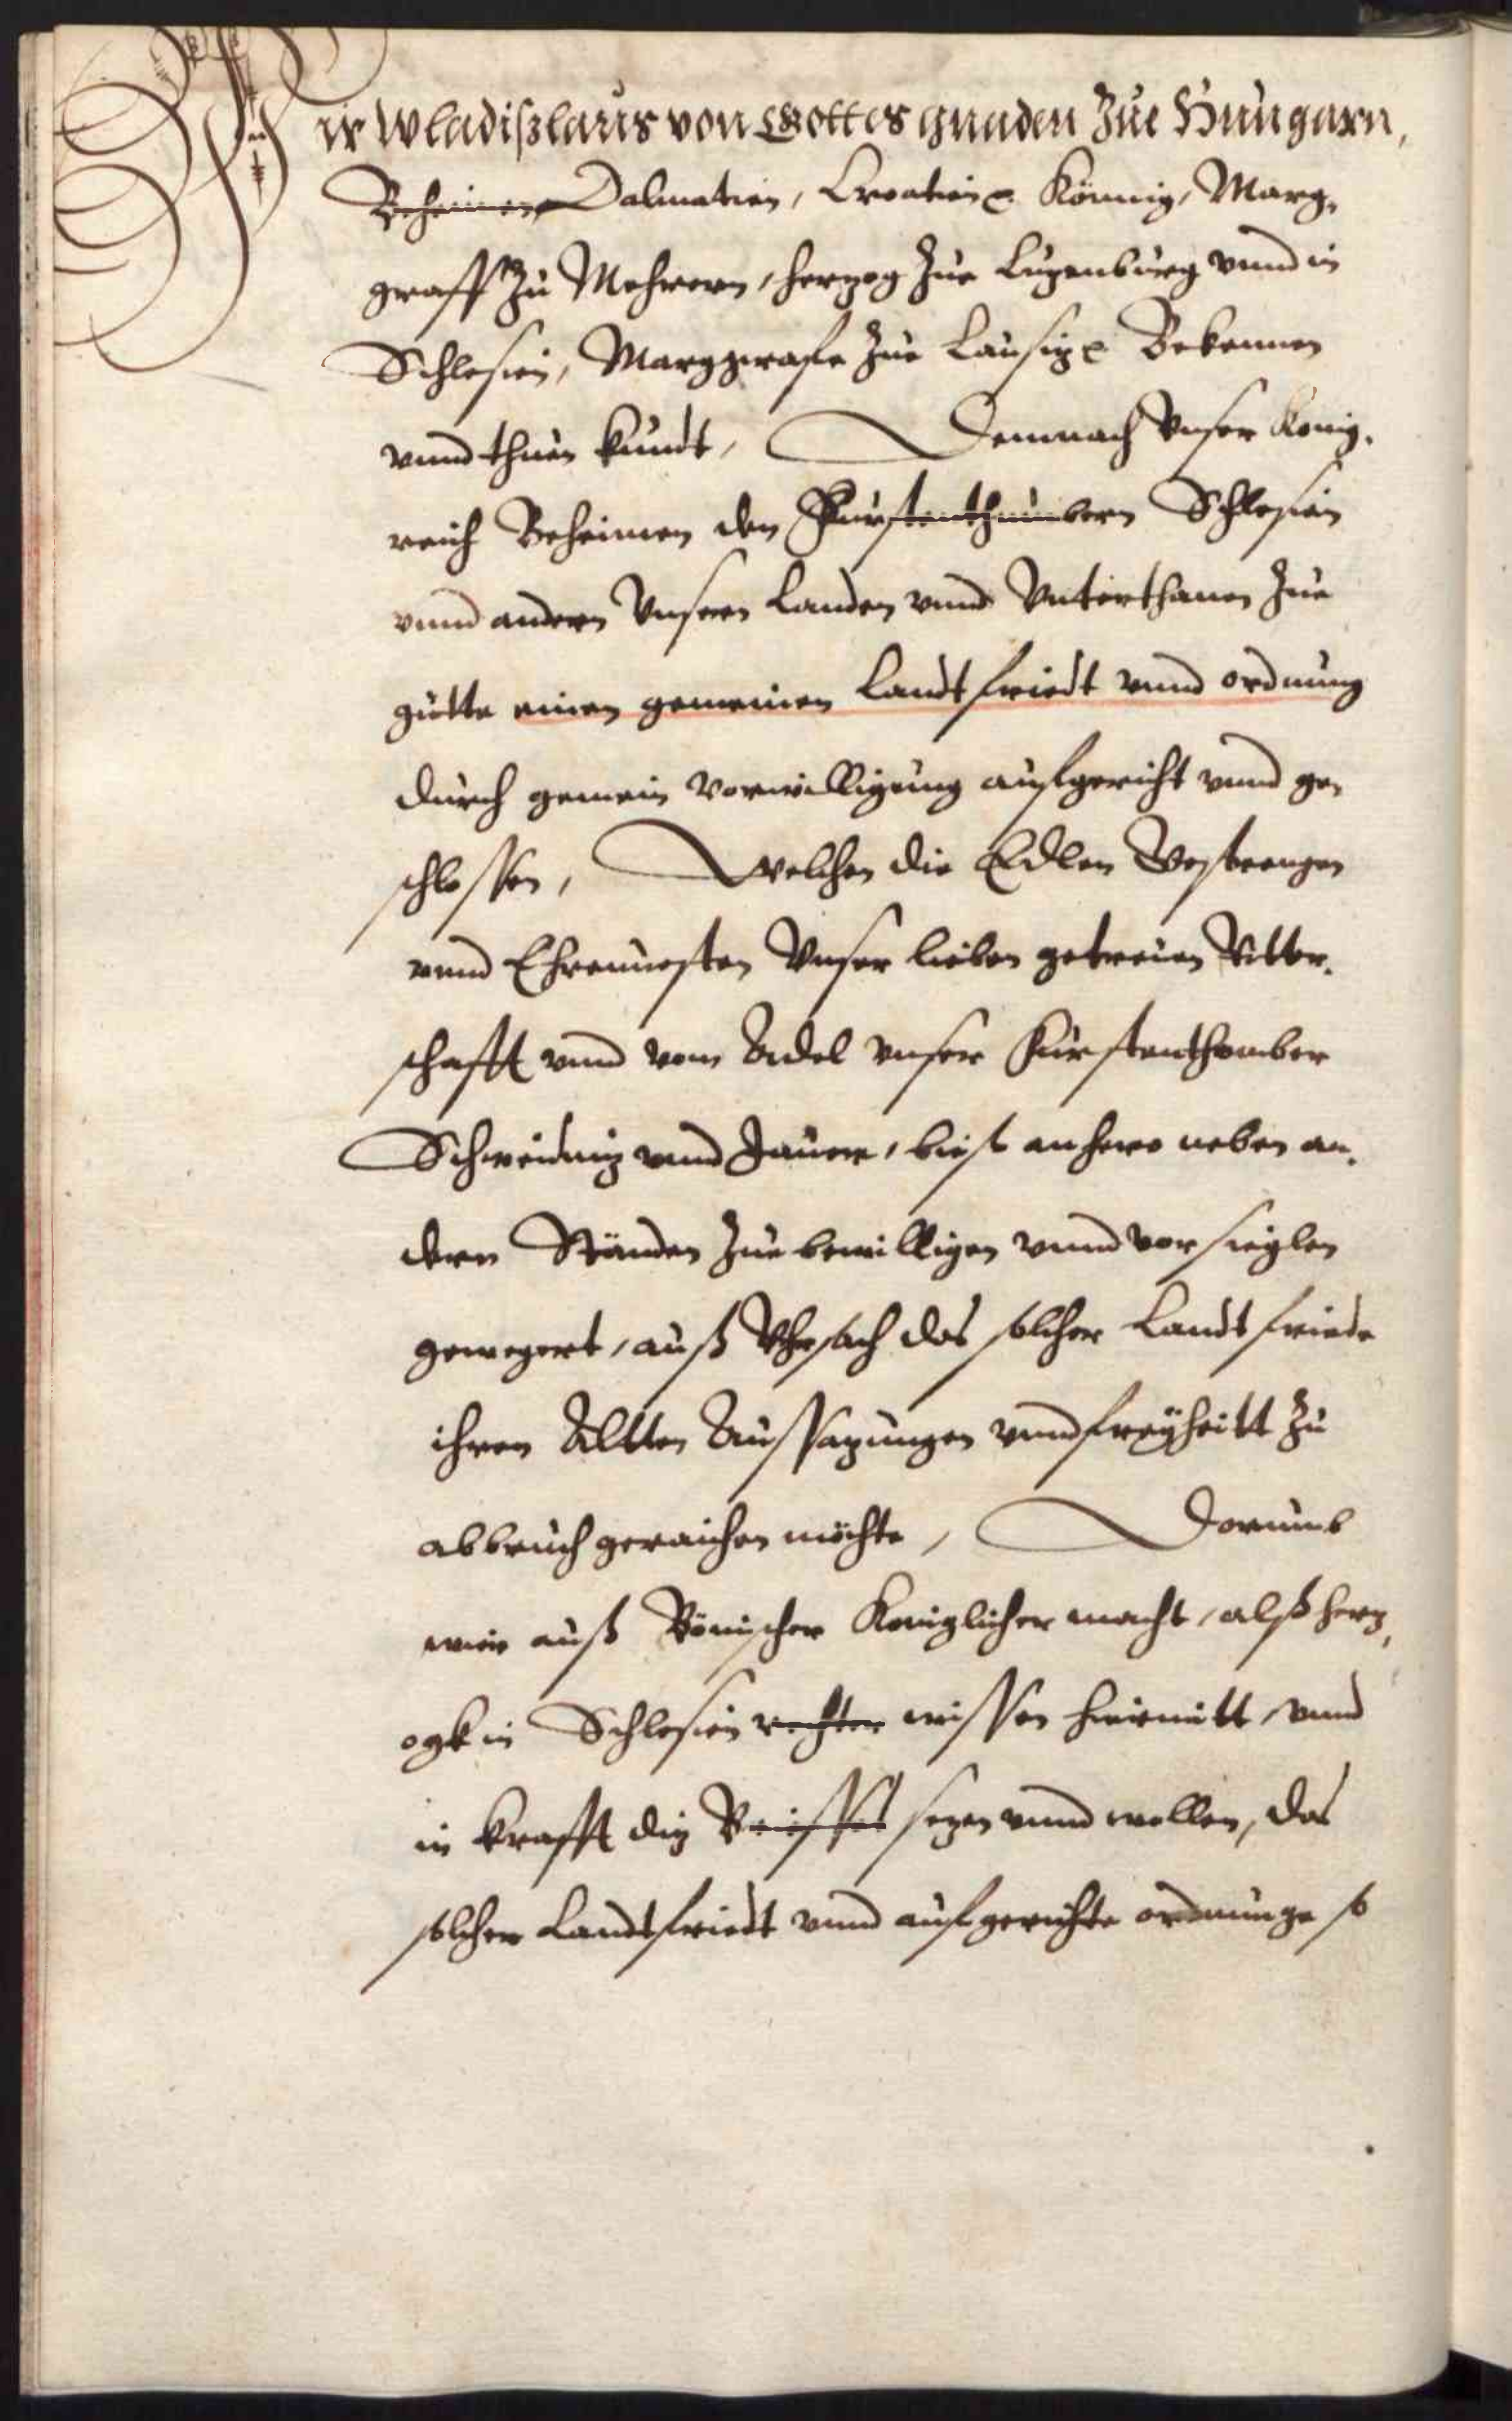 Wir Wladißlaus von Gottes gnaden Zue Hungarn,
Beheimen Dalmatien, Croatien ꝛc. Könnig, Marg,
graff Zu Mehrern, herzog Zue Luzenburg vnnd in
Schlesien, Marggrafe Zue Lausiz ꝛc. Bekennen
vnnd thuen kundt, Demnach Vnser Konig,
reich Beheimen den Fürstenthumbern Schlesien
vnnd andern Vnsern Landen vnnd Vnterthanen Zue
gutte einen gemeinen Landtfriedt vnnd ordnung
durch gemein vorwilligung aufgericht vnnd ge,
schlossen, Welchen die Edlen Gestrengen
vnnd Ehrenuesten Vnser lieben getreuen Ritter,
schafft vnnd vom Adel vnser Fürstenthomber
Schweidniz vnnd Jauer, bieß anhero neben an,
dern Ständen Zue bewilligen vnnd vorsieglen
gewegert, auß Vhrsach das solcher Landtfriede
ihren Altten Aussazungen vnnd freyheitt Zu
abbruch geraichen möchte, Dorumb
wier auß Bömischer Koniglicher macht, alß herz,
ogk in Schlesien rechter wissen hiermitt, vnnd
in krafft diz Brieffes sezen vnnd wollen, das
solcher Landtfriedt vnnd aufgerichte ordnunge so